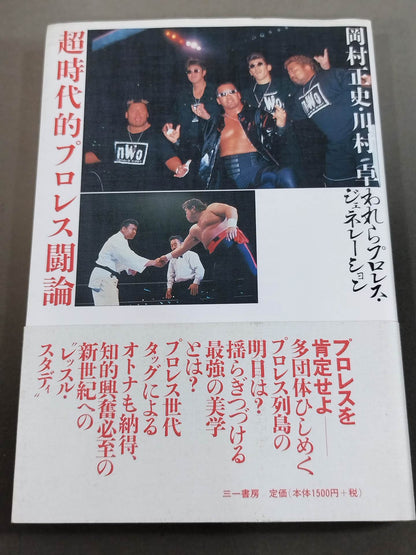 岡村正史・川村卓
われらプロレス・
ジェネレーション
超時代的プロレス闘論
nWo
nWo
nWo
プロレスを
肯定せよ――
多団体ひしめく
プロレス列島の
明日は?
揺らぎつづける
最強の美学
とは?
プロレス世代
タッグによる
オトナも納得、
知的興奮必至の
新世紀への
"レッスル・
スタディ"
三一書房 定価(本体1500円+税)